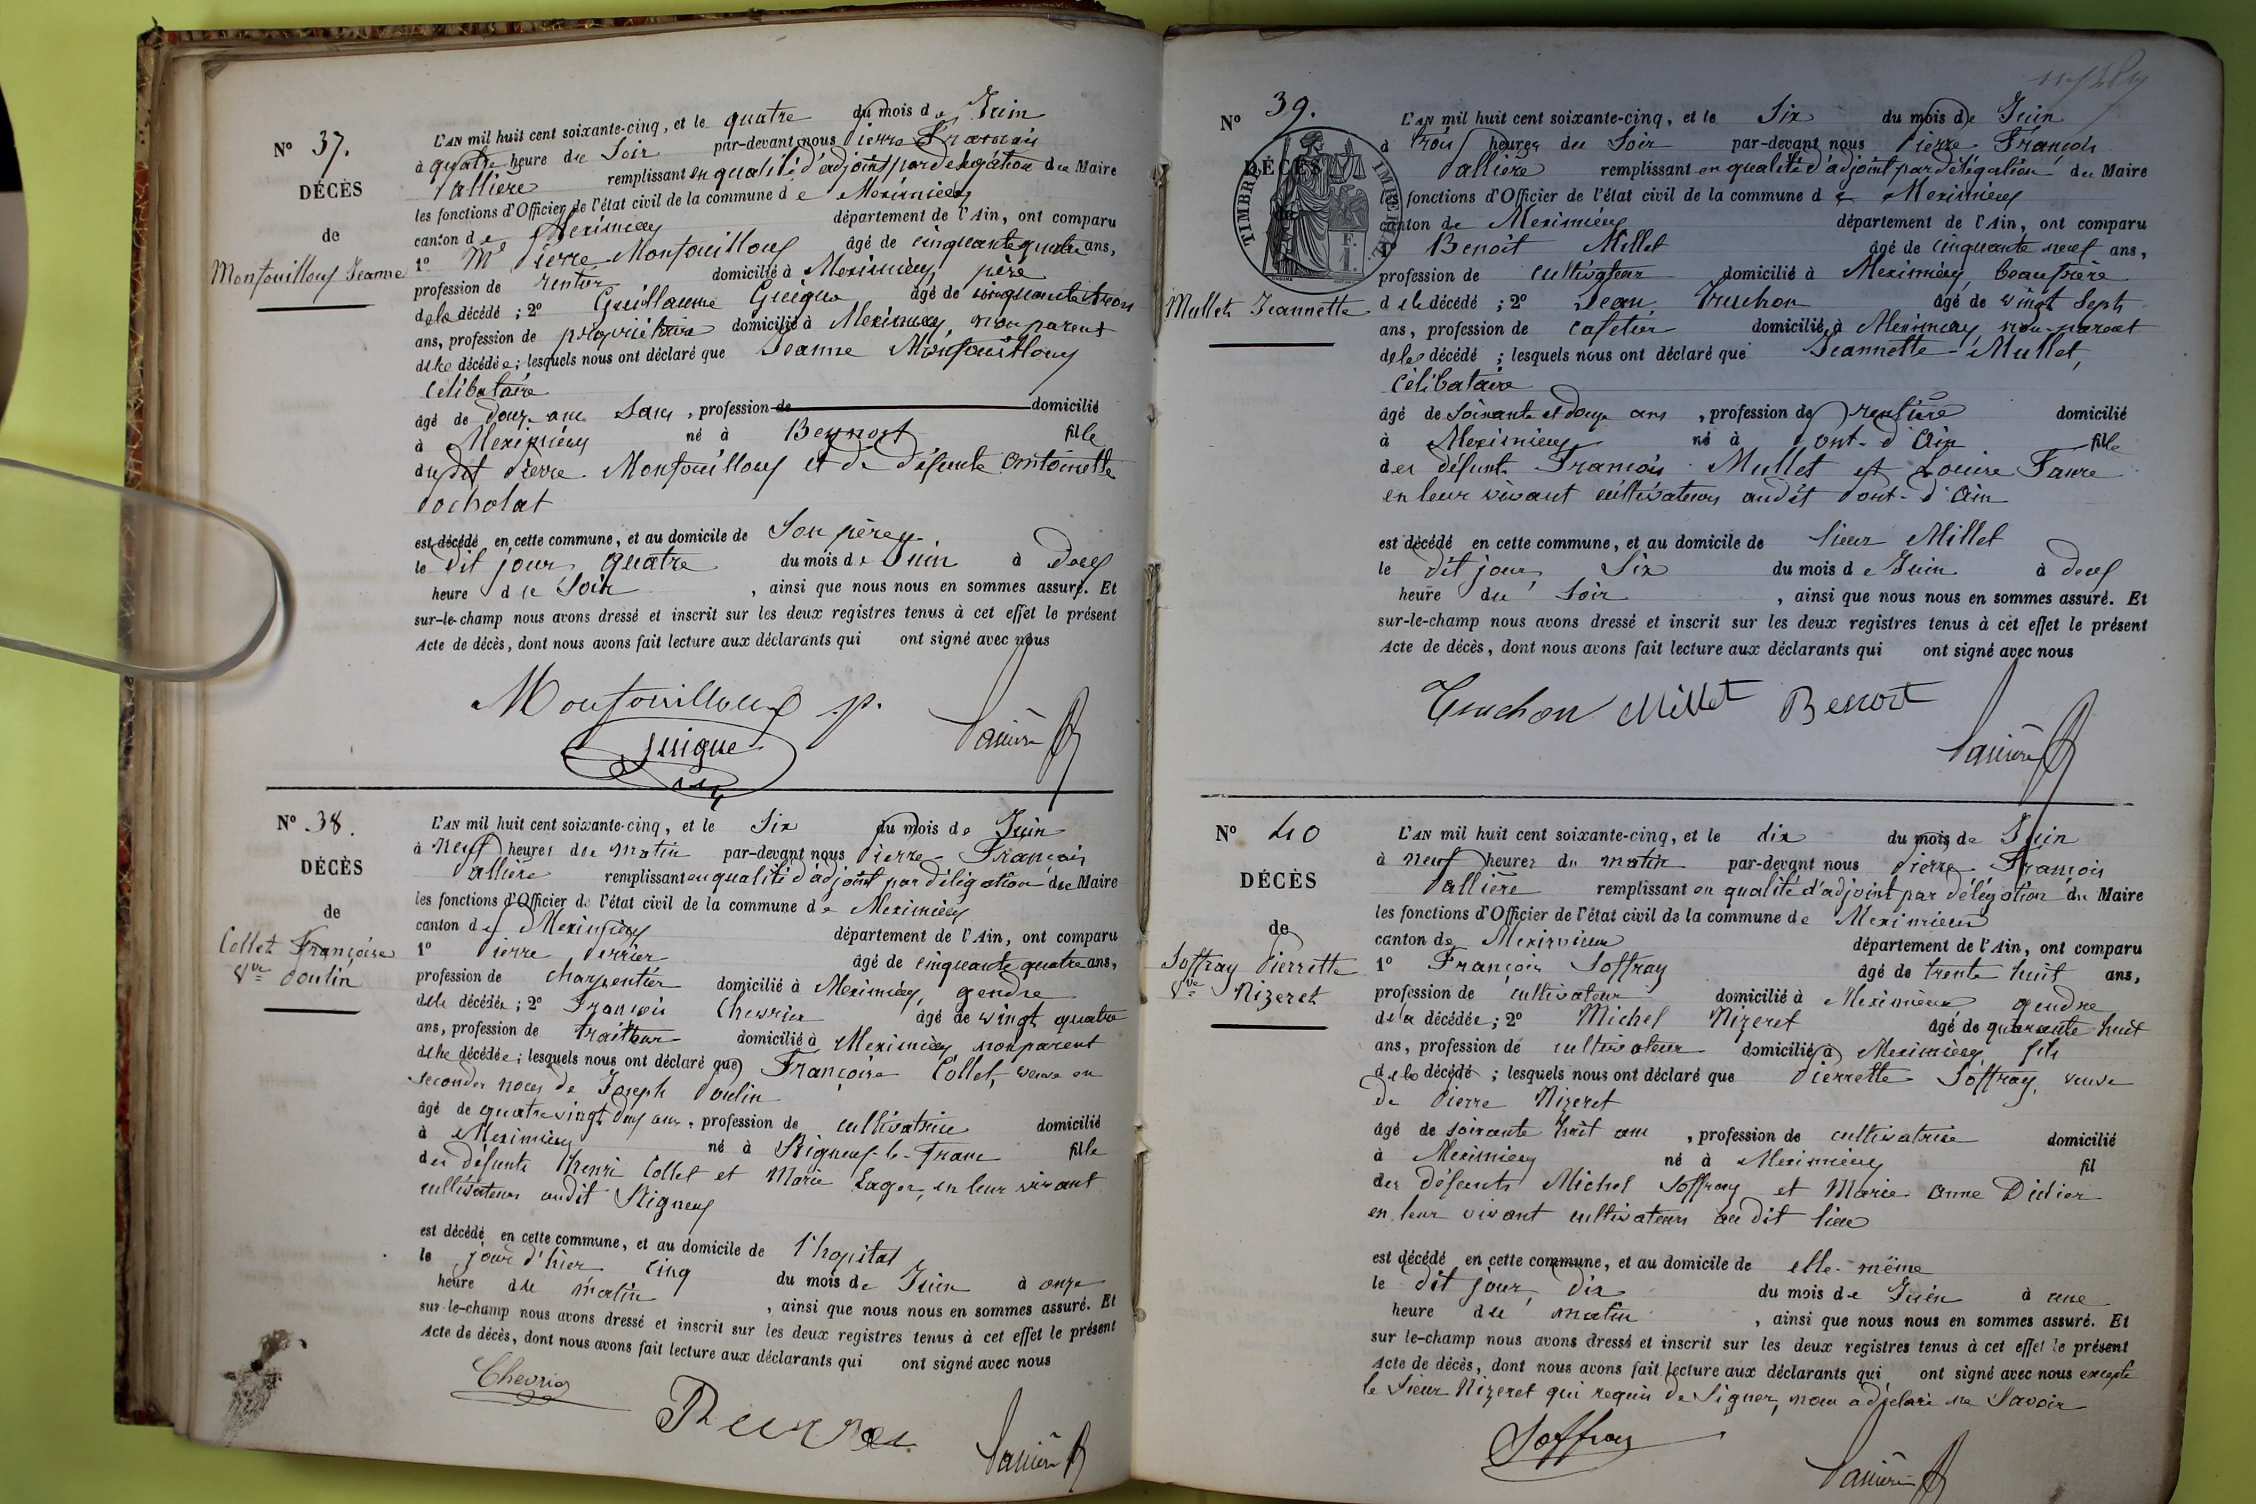 N° 37.
DÉCÈS
de
Montouilloux Jeanne
L'AN mil huit cent soixante-cinq, et le quatre du mois de Juin
à quatre heure du Soir par-devant nous Pierre François
Vallière remplissant en qualité d'adjoint par délégation du Maire
les fonctions d'Officier de l'état civil de la commune de Meximieux
canton de Meximieux département de l'Ain, ont comparu
1° Mr Pierre Montouilloux âgé de cinquante quatre ans,
profession de rentier domicilié à Meximieux père
de la décédé ; 2° Guillaume Guigue âgé de cinquante trois
ans, profession de propriétaire domicilié à Meximieux, non parent
de la décédée ; lesquels nous ont déclaré que Jeanne Montouilloux
célibataire
âgé de douze ans , profession de domicilié
à Meximieux né à Beynost fille
du dit Pierre Montouilloux et de défunte Antoinette
Pocholat
est décédé en cette commune, et au domicile de Son père
le dit jour quatre du mois de Juin à deux
heure de Soir , ainsi que nous nous en sommes assuré. Et
sur-le-champ nous avons dressé et inscrit sur les deux registres tenus à cet effet le présent
Acte de décès, dont nous avons fait lecture aux déclarants qui ont signé avec nous
Montouilloux p.
Guigue
Vallière
N° 38.
DÉCÈS
de
Collet Françoise
Vve Poulin
L'AN mil huit cent soixante-cinq, et le Six du mois de Juin
à neuf heures du matin par-devant nous Pierre François
Vallière remplissant en qualité d'adjoint par délégation du Maire
les fonctions d'Officier de l'état civil de la commune de Meximieux
canton de Meximieux département de l'Ain, ont comparu
1° Pierre Perrier âgé de cinquante quatre ans,
profession de charpentier domicilié à Meximieux, gendre
de la décédée ; 2° François Chevrier âgé de vingt quatre
ans, profession de traiteur domicilié à Meximieux non parent
de la décédée ; lesquels nous ont déclaré que Françoise Collet, veuve en
secondes noces de Joseph Poulin
âgé de quatre vingt deux ans, profession de cultivatrice domicilié
à Meximieux né à Rigneux-le-Franc fille
des défunts Henri Collet et Marie Lager, en leur vivant
cultivateurs audit Rigneux
est décédé en cette commune, et au domicile de l'hopital
le jour d'hier cinq du mois de Juin à onze
heure du matin , ainsi que nous nous en sommes assuré. Et
sur-le-champ nous avons dressé et inscrit sur les deux registres tenus à cet effet le présent
Acte de décès, dont nous avons fait lecture aux déclarants qui ont signé avec nous
Chevrier
Vallière
N° 39.
DÉCÈS
TIMBRE IMPERIAL
Mullet Jeannette
L'AN mil huit cent soixante-cinq, et le Six du mois de Juin
à trois heures du Soir par-devant nous Pierre François
Vallière remplissant en qualité d'adjoint par délégation du Maire
les fonctions d'Officier de l'état civil de la commune de Meximieux
canton de Meximieux département de l'Ain, ont comparu
1° Benoît Millet âgé de cinquante neuf ans,
profession de cultivateur domicilié à Meximieux, beau frère
de la décédé ; 2° Jean Truchon âgé de vingt Sept
ans, profession de cafetier domicilié à Meximieux non-parent
de la décédé ; lesquels nous ont déclaré que Jeannette Mullet,
célibataire
âgé de soixante et douze ans , profession de rentière domicilié
à Meximieux né à Pont-d'Ain fille
des défunts François Mullet et Louise Favre
en leur vivant cultivateurs audit Pont-d'Ain
est décédé en cette commune, et au domicile de Sieur Millet
le dit jour, Six du mois de Juin à deux
heure du Soir , ainsi que nous nous en sommes assuré. Et
sur-le-champ nous avons dressé et inscrit sur les deux registres tenus à cet effet le présent
Acte de décès, dont nous avons fait lecture aux déclarants qui ont signé avec nous
Truchon Millet Benoit
Vallière
N° 40
DÉCÈS
de
Soffray Pierrette
Vve Nizeret
L'AN mil huit cent soixante-cinq, et le dix du mois de Juin
à neuf heures du matin par-devant nous Pierre François
Vallière remplissant en qualité d'adjoint par délégation du Maire
les fonctions d'Officier de l'état civil de la commune de Meximieux
canton de Meximieux département de l'Ain, ont comparu
1° François Soffray âgé de trente huit ans,
profession de cultivateur domicilié à Meximieux gendre
de la décédée ; 2° Michel Nizeret âgé de quarante huit
ans, profession de cultivateur domicilié à Meximieux fils
de la décédé ; lesquels nous ont déclaré que Pierrette Soffray, veuve
de Pierre Nizeret
âgé de soixante huit ans , profession de cultivatrice domicilié
à Meximieux né à Meximieux fil
des défunts Michel Soffray et Marie Anne Didier
en leur vivant cultivateurs au dit lieu
est décédé en cette commune, et au domicile de elle-même
le dit jour, dix du mois de Juin à une
heure du matin , ainsi que nous nous en sommes assuré. Et
sur le-champ nous avons dressé et inscrit sur les deux registres tenus à cet effet le présent
Acte de décès, dont nous avons fait lecture aux déclarants qui ont signé avec nous excepté
le Sieur Nizeret qui requis de Signer, nous a déclaré ne Savoir
Soffray
Vallière